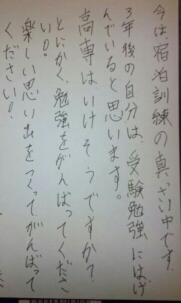 今は宿泊訓練の真っさい中です。
3年後の自分は受験勉強にはげ
んでいると思います。
高専はいけそうですか？
とにかく、勉強をがんばってくださ
い！！
楽しい思い出をつくってがんばって
ください！